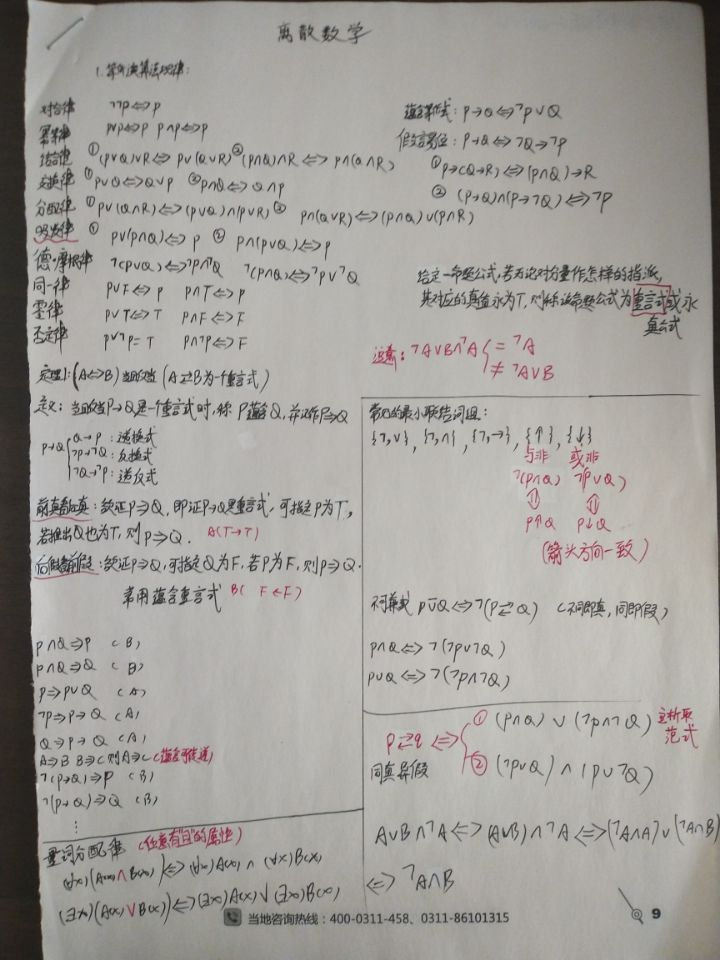 离散数学
1.等价演算法规律:
对合律 ¬¬P⇔P
幂等律 P∨P⇔P P∧P⇔P
结合律 ①(P∨Q)∨R⇔P∨(Q∨R) ②(P∧Q)∧R⇔P∧(Q∧R)
交换律 ①P∨Q⇔Q∨P ②P∧Q⇔Q∧P
分配律 ①P∨(Q∧R)⇔(P∨Q)∧(P∨R) ② P∧(Q∨R)⇔(P∧Q)∨(P∧R)
吸收律 ① P∨(P∧Q)⇔P ② P∧(P∨Q)⇔P
德·摩根律 ¬(P∨Q)⇔¬P∧¬Q ¬(P∧Q)⇔¬P∨¬Q
同一律 P∨F⇔P P∧T⇔P
零律 P∨T⇔T P∧F⇔F
否定律 P∨¬P=T P∧¬P⇔F
蕴含等值式:P→Q⇔¬P∨Q
假言易位:P→Q⇔¬Q→¬P
①P→(Q→R)⇔(P∧Q)→R
② (P→Q)∧(P→¬Q)⇔¬P
给定一命题公式,若无论对分量作怎样的指派,
其对应的真值永为T,则称该命题公式为重言式或永
真公式
注意:¬A∨B∧¬A{=¬A
≠¬A∨B
定理1:(A⇔B)当且仅当(A⇄B为一个重言式)
定义:当且仅当P→Q是一个重言式时,称P蕴含Q,并记作P⇒Q
P→Q{Q→P:逆换式
¬P→¬Q:反换式
¬Q→¬P:逆反式
前真证后真:欲证P⇒Q,即证P→Q是重言式,可指定P为T,
若推出Q也为T,则P⇒Q. A(T→T)
后假证前假:欲证P⇒Q,可指定Q为F,若P为F,则P⇒Q.
常用蕴含重言式 B(F←F)
P∧Q⇒P (B)
P∧Q⇒Q (B)
P⇒P∨Q (A)
¬P⇒P→Q (A)
Q⇒P→Q (A)
A⇒B B⇒C则A⇒C(蕴含可传递)
¬(P→Q)⇒P (B)
¬(P→Q)⇒Q (B)
⋮
量词分配律 (任意有"且"的属性)
(∀x)(A(x)∧B(x))⇔(∀x)A(x)∧(∀x)B(x)
(∃x)(A(x)∨B(x))⇔(∃x)A(x)∨(∃x)B(x)
常见的最小联结词组:
{¬,∨},{¬,∧},{¬,→},{↑},{↓}
与非 或非
¬(P∧Q) ¬(P∨Q)
⇕ ⇕
P↑Q P↓Q
(箭头方向一致)
不可兼或 P⊽Q⇔¬(P⇄Q) (不同即真,同即假)
P∧Q⇔¬(¬P∨¬Q)
P∪Q⇔¬(¬P∧¬Q)
P⇄q⇔{①(P∧Q)∨(¬P∧¬Q) 主析取
范式
同真异假 ②(¬P∨Q)∧(P∨¬Q)
A∨B∧¬A⇔(A∨B)∧¬A⇔(¬A∧A)∨(¬A∧B)
⇔¬A∧B
当地咨询热线:400-0311-458、0311-86101315
9